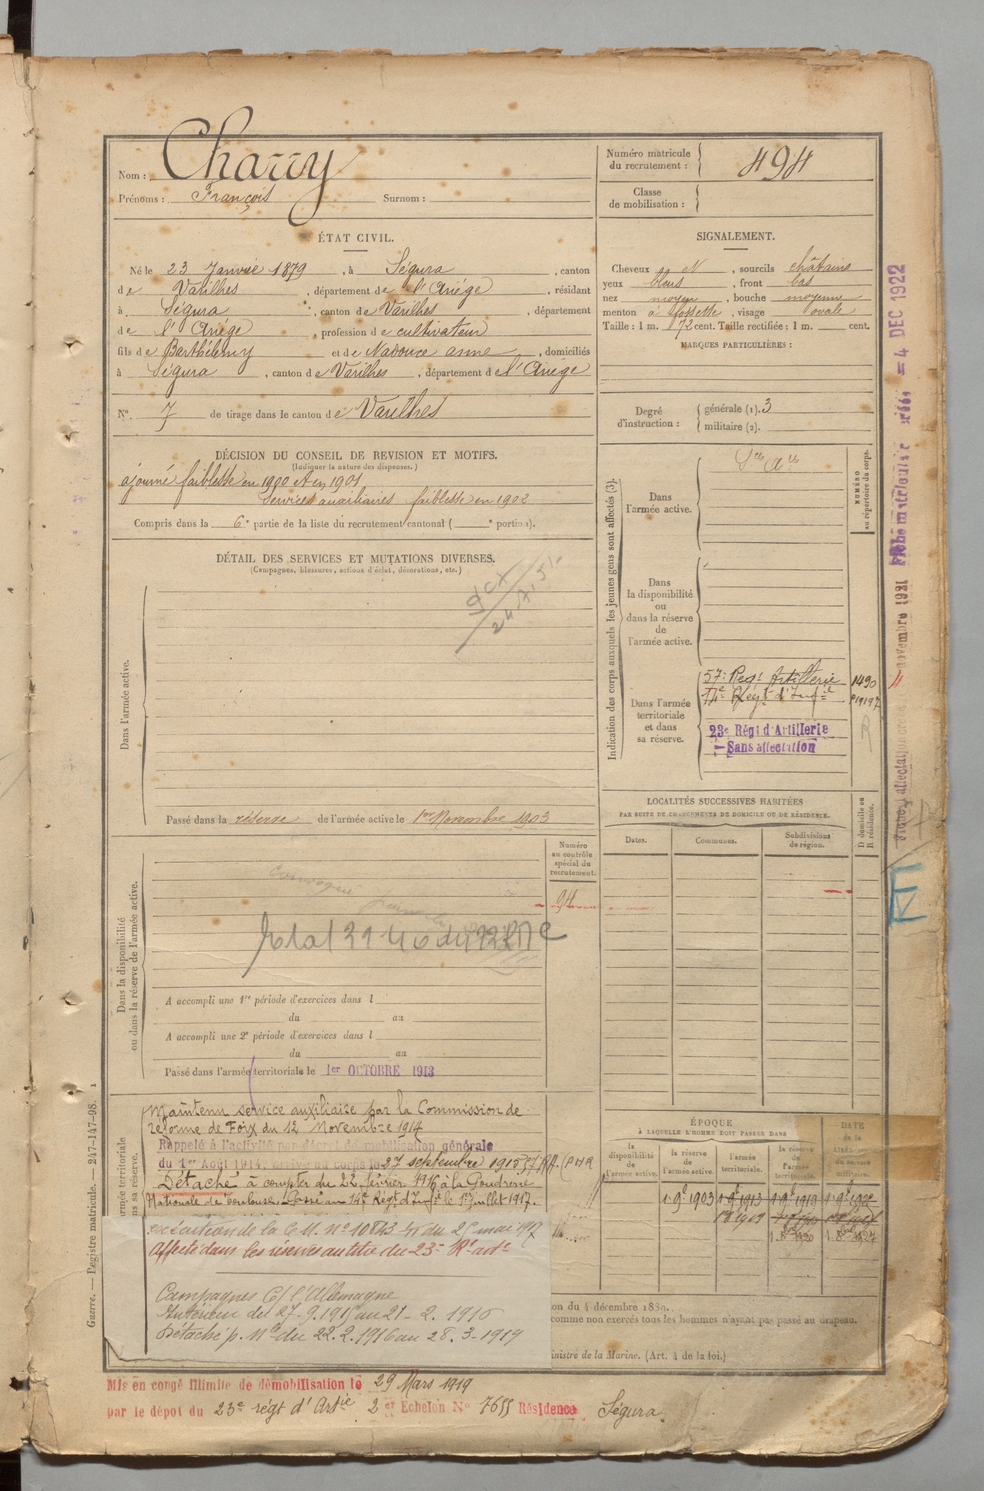 Nom : Charry
Prénoms : François Surnom :
Numéro matricule du recrutement : 494
Classe de mobilisation :
ÉTAT CIVIL.
Né le 23 Janvier 1879, à Ségura, canton
de Varilhes, département de l'Ariége, résidant
à Ségura, canton de Varilhes, département
de l'Ariége, profession de cultivateur
fils de Barthélemy et de Nadouce anne, domiciliés
à Ségura, canton de Varilhes, département de l'Ariége
N° 7 de tirage dans le canton de Varilhes
SIGNALEMENT.
Cheveux N, sourcils châtains
yeux bleus, front bas
nez moyen, bouche moyenne
menton à fossette, visage ovale
Taille : 1 m. 72 cent. Taille rectifiée : 1 m. cent.
MARQUES PARTICULIÈRES :
Degré d'instruction : générale (1). 3
militaire (2).
DÉCISION DU CONSEIL DE REVISION ET MOTIFS.
(Indiquer la nature des dispenses.)
ajourné faiblesse en 1900 et en 1901
Services auxiliaires faiblesse en 1902
Compris dans la 6e partie de la liste du recrutement cantonal ( e portion).
DÉTAIL DES SERVICES ET MUTATIONS DIVERSES.
(Campagnes, blessures, actions d'éclat, décorations, etc.)
Dans l'armée active.
Passé dans la réserve de l'armée active le 1er Novembre 1903
Indication des corps auxquels les jeunes gens sont affectés (3).
NUMÉRO au répertoire du corps.
Dans l'armée active.
Dans la disponibilité ou dans la réserve de l'armée active.
Dans l'armée territoriale et dans sa réserve.
57e Regt Artillerie 1490
14e Régt d'Infie
23e Régt d'Artillerie
Sans affectation
R
LOCALITÉS SUCCESSIVES HABITÉES
PAR SUITE DE CHANGEMENTS DE DOMICILE OU DE RÉSIDENCE.
Dates. Communes. Subdivisions de région. D domicile ou R résidence.
Dans la disponibilité ou dans la réserve de l'armée active.
Numéro au contrôle spécial du recrutement.
94
A accompli une 1re période d'exercices dans l
du au
A accompli une 2e période d'exercices dans l
du au
Passé dans l'armée territoriale le 1er OCTOBRE 1913
Maintenu service auxiliaire par la Commission de
réforme de Foix du 12 Novembre 1914
Rappelé à l'activité par décret de mobilisation générale
du 1er Août 1914. Arrivé au corps le 27 septembre 1915
Détaché à compter du 22 février 1916 à la Poudrerie
Nationale de Toulouse. Passé au 14e Régt d'Infie le 1er juillet 1917.
en exécution de la C. M. n° 10843 du 25 mai 1917
Affecté dans les réserves au titre du 23e Rt artie
Campagnes C/ l'Allemagne
Intérieur du 27-9.1915 au 21-2.1916
Détaché p. Mre du 22.2.1916 au 28.3.1919
ÉPOQUE
À LAQUELLE L'HOMME DOIT PASSER DANS
la disponibilité de l'armée active. la réserve de l'armée active. l'armée territoriale. la réserve de l'armée territoriale. DATE de la libération du service militaire.
on du 4 décembre 1889.
comme non exercés tous les hommes n'ayant pas passé au drapeau.
inistre de la Marine. (Art. 4 de la loi.)
Mis en congé illimité de démobilisation le 29 Mars 1919
par le dépôt du 23e régt d'Artie 2e Echelon N° 7655 Résidence Ségura
Guerre. — Registre matricule. — 247-147-98.
= 4 DEC 1922